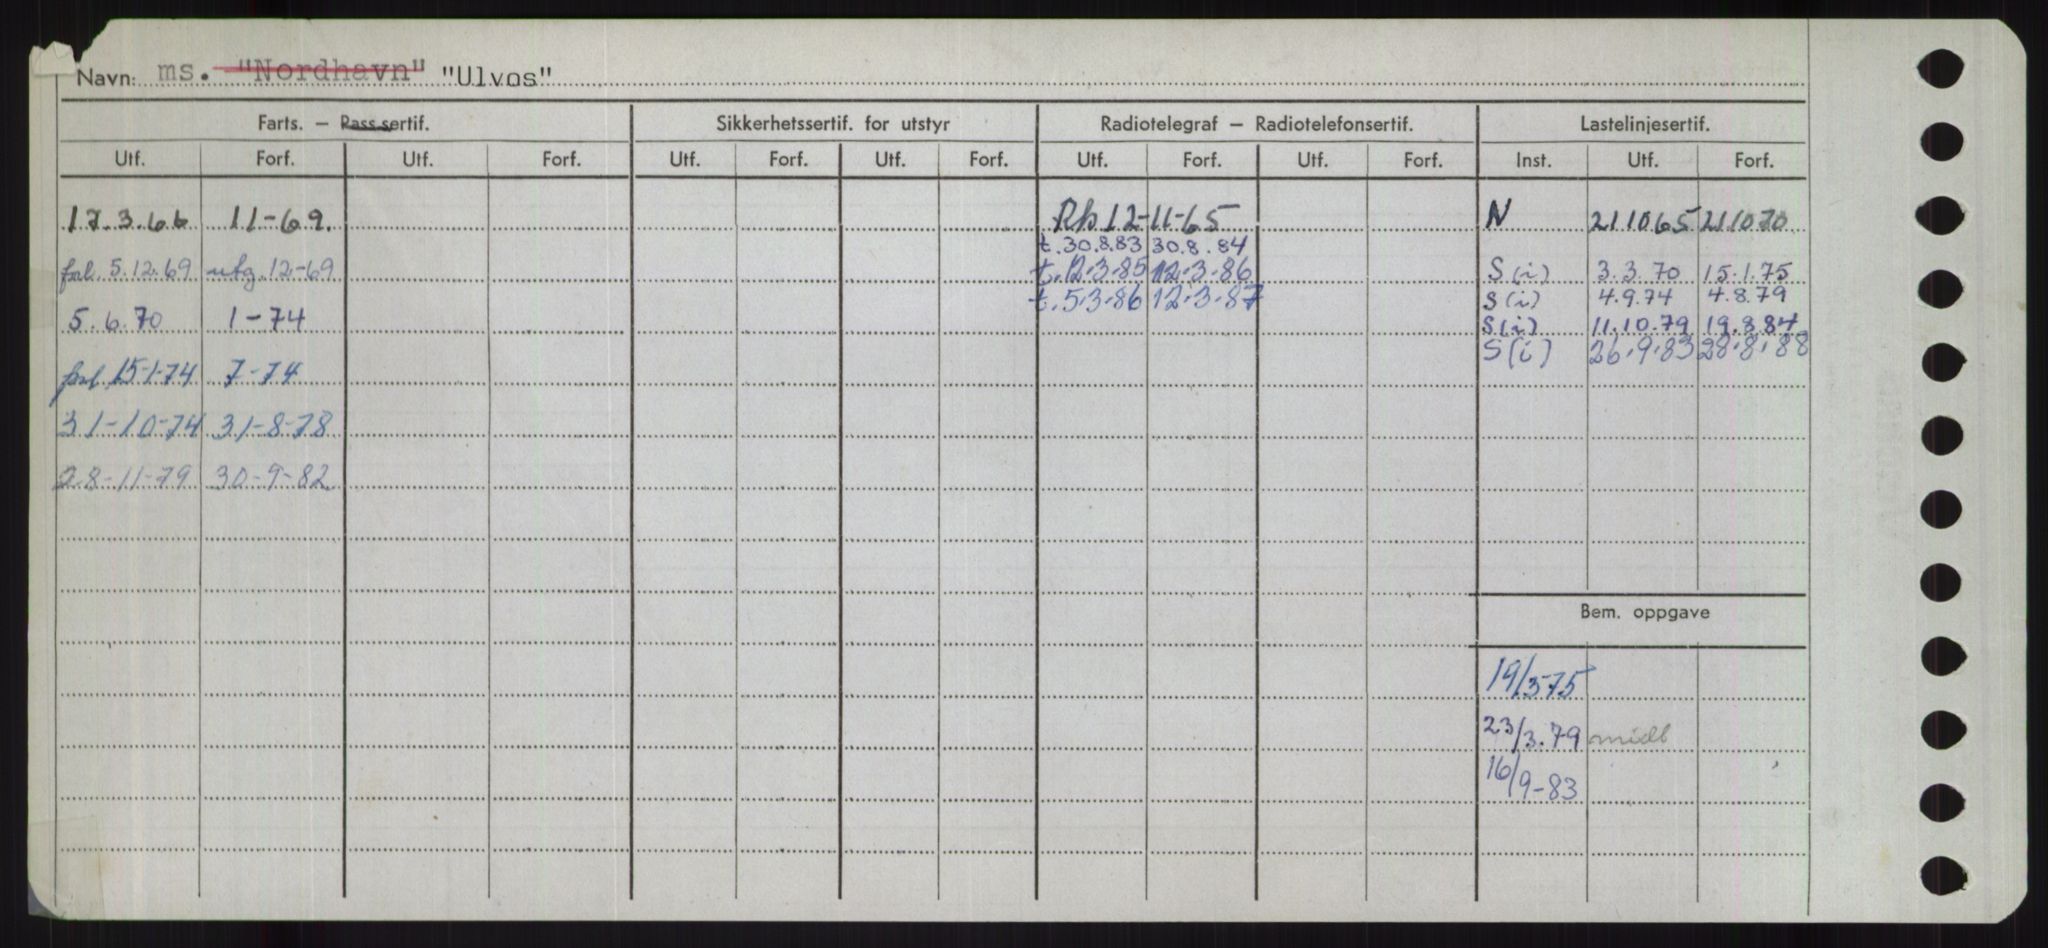 Navn: ms. "Nordhavn" "Ulvos"
Farts. — Pass.sertif. Sikkerhetssertif. for utstyr Radiotelegraf — Radiotelefonsertif. Lastelinjesertif.
Utf. Forf. Utf. Forf. Utf. Forf. Utf. Forf. Utf. Forf. Utf. Forf. Inst. Utf. Forf.
17.3.66 11-69. 12-11-65 N 211065 211070
t. 30.8.83 30.8.84
fal. 5.12.69 utg. 12-69 t. 12-3-85 12-3-86 S(i) 3.3.70 15.1.75
t. 5-3-86 12-3-87 S(i) 4.9.74 4.8.79
5.6.70 1-74 S(i) 11.10.79 19.8.84
S(i) 26.9.83 28.8.88
fal 15-1-74 7-74
31-10-74 31-8-78
28-11-79 30-9-82
Bem. oppgave
19/3-75
23/3.79 midl
16/9-83